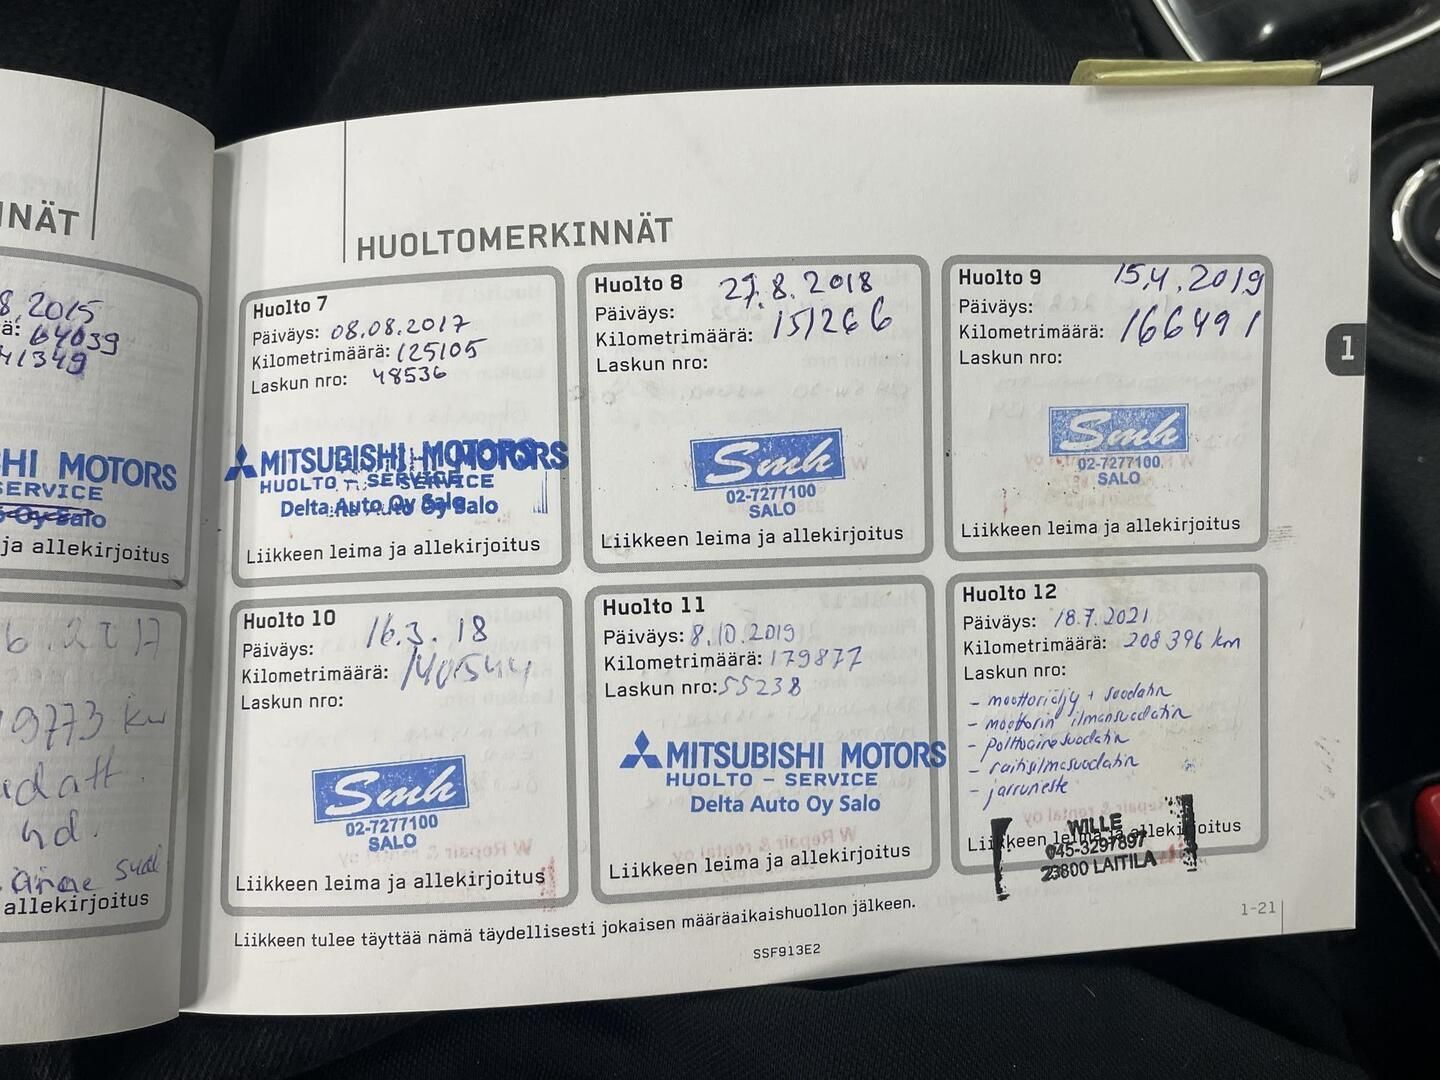 NNÄT
8.2015
ä: 64039
41349
HI MOTORS
SERVICE
Oy Salo
ja allekirjoitus
6.2017
9773 km
nd.
allekirjoitus
HUOLTOMERKINNÄT
Huolto 7
Päiväys: 08.08.2017
Kilometrimäärä: 125105
Laskun nro: 48536
MITSUBISHI MOTORS
HUOLTO – SERVICE
Delta Auto Oy Salo
Liikkeen leima ja allekirjoitus
Huolto 8
Päiväys: 27.8.2018
Kilometrimäärä: 151266
Laskun nro:
Smh
02-7277100
SALO
Liikkeen leima ja allekirjoitus
Huolto 9
Päiväys: 15.4.2019
Kilometrimäärä: 166491
Laskun nro:
Smh
02-7277100
SALO
Liikkeen leima ja allekirjoitus
1
Huolto 10
Päiväys: 16.3.18
Kilometrimäärä: 140544
Laskun nro:
Smh
02-7277100
SALO
Liikkeen leima ja allekirjoitus
Huolto 11
Päiväys: 8.10.2019
Kilometrimäärä: 179877
Laskun nro: 55238
MITSUBISHI MOTORS
HUOLTO – SERVICE
Delta Auto Oy Salo
Liikkeen leima ja allekirjoitus
Huolto 12
Päiväys: 18.7.2021
Kilometrimäärä: 208396 km
Laskun nro:
- moottoriöljy + suodatin
- moottorin ilmansuodatin
- polttoainesuodatin
- raitisilmasuodatin
- jarruneste
Liikkeen leima ja allekirjoitus
WILLE
045-3297897
23800 LAITILA
Liikkeen tulee täyttää nämä täydellisesti jokaisen määräaikaishuollon jälkeen.
1-21
SSF913E2